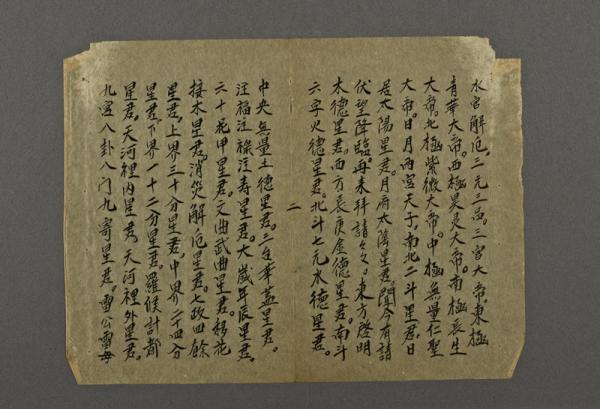 水官解厄三元三品三官大帝。東極
青華大帝。西極昊灵大帝。南極長生
大帝。北極紫微大帝。中極無量仁聖
大帝。日月两宫天子。南北二斗星君。日
是太陽星君。月府太陰星君。聞今有請
伏望降臨。再来拜請々々。東方啓明
木德星君。西方長庚金德星君。南斗
六字火德星君。北斗七元水德星君。
二
中央無量土德星君。三台華蓋星君。
注福注祿注寿星君。大歲年辰星君。
六十花甲星君。文曲武曲星君。移花
接木星君。消災解厄星君。七政四餘
星君。上界三十分星君。中界二十四分
星君。下界一十二分星君。羅候計都
星君。天河裡内星君。天河裡外星君。
九宫八卦八门九寄星君。雷公雷母